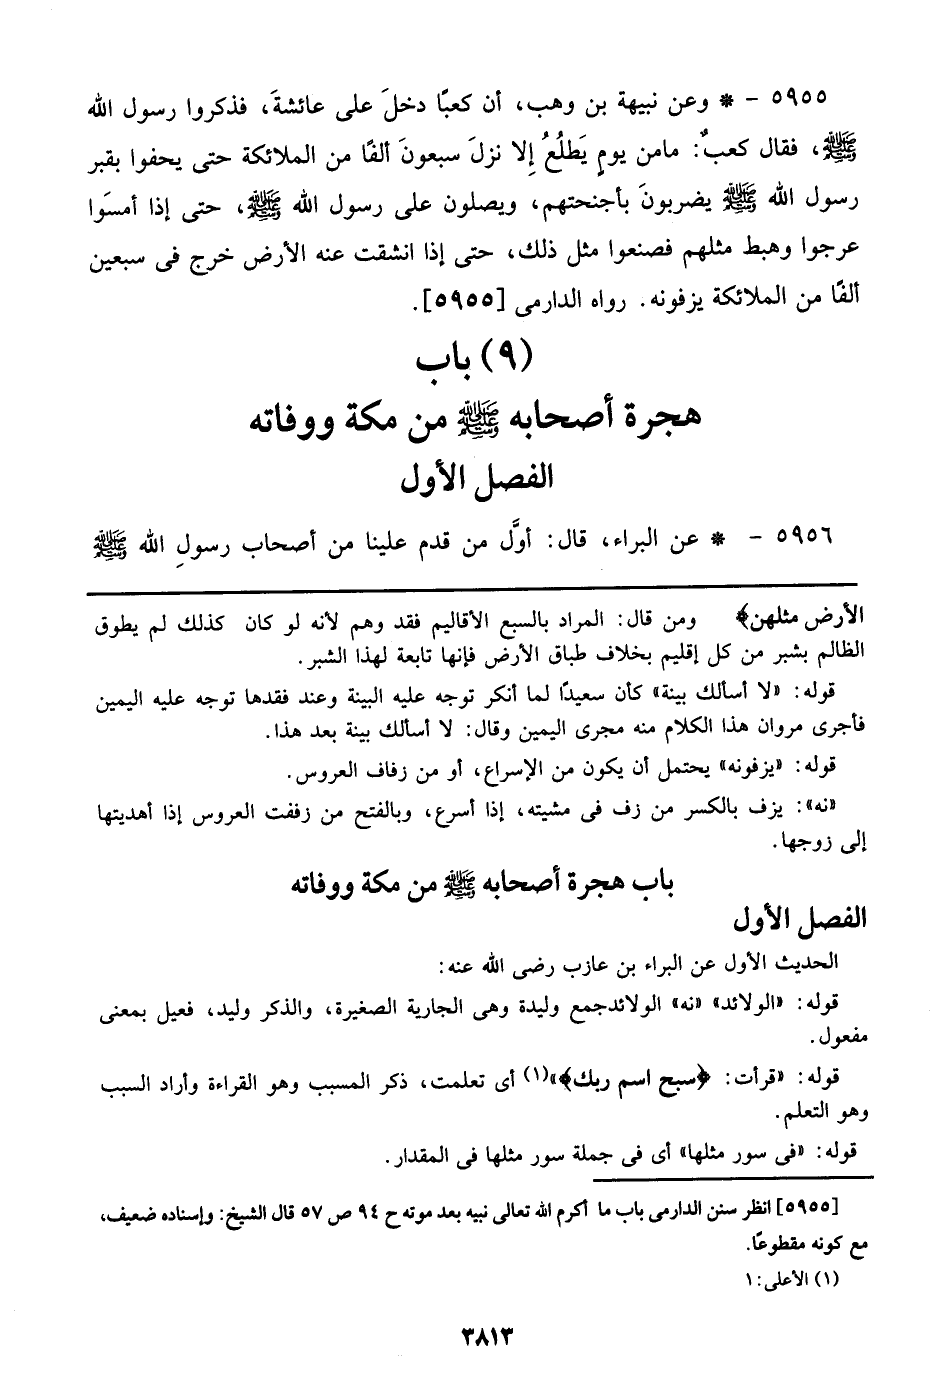 ٥٩٥٥ - * وعن نبيهة بن وهب، أن كعبًا دخلَ على عائشةَ، فذكروا رسول الله
ﷺ، فقال كعبٌ: مامن يومٍ يَطلُعُ إلا نزلَ سبعونَ ألفًا من الملائكة حتى يحفوا بقبر
رسول الله ﷺ يضربونَ بأجنحتهم، ويصلون على رسول الله ﷺ، حتى إذا أمسَوا
عرجوا وهبط مثلهم فصنعوا مثل ذلك، حتى إذا انشقت عنه الأرض خرج فى سبعين
ألفًا من الملائكة يزفونه. رواه الدارمى [٥٩٥٥].
(٩) باب
هجرة أصحابه ﷺ من مكة ووفاته
الفصل الأول
٥٩٥٦ - * عن البراء، قال: أوَّل من قدم علينا من أصحاب رسولِ الله ﷺ
الأرض مثلهن﴾ ومن قال: المراد بالسبع الأقاليم فقد وهم لأنه لو كان كذلك لم يطوق
الظالم بشبر من كل إقليم بخلاف طباق الأرض فإنها تابعة لهذا الشبر.
قوله: «لا أسألك بينة» كأن سعيدًا لما أنكر توجه عليه البينة وعند فقدها توجه عليه اليمين
فأجرى مروان هذا الكلام منه مجرى اليمين وقال: لا أسألك بينة بعد هذا.
قوله: «يزفونه» يحتمل أن يكون من الإسراع، أو من زفاف العروس.
«نه»: يزف بالكسر من زف فى مشيته، إذا أسرع، وبالفتح من زففت العروس إذا أهديتها
إلى زوجها.
باب هجرة أصحابه ﷺ من مكة ووفاته
الفصل الأول
الحديث الأول عن البراء بن عازب رضى الله عنه:
قوله: «الولائد» «نه» الولائدجمع وليدة وهى الجارية الصغيرة، والذكر وليد، فعيل بمعنى
مفعول.
قوله: «قرأت: ﴿سبح اسم ربك﴾»(١) أى تعلمت، ذكر المسبب وهو القراءة وأراد السبب
وهو التعلم.
قوله: «فى سور مثلها» أى فى جملة سور مثلها فى المقدار.
[٥٩٥٥] انظر سنن الدارمى باب ما أكرم الله تعالى نبيه بعد موته ح ٩٤ ص ٥٧ قال الشيخ: وإسناده ضعيف،
مع كونه مقطوعًا.
(١) الأعلى: ١
٣٨١٣